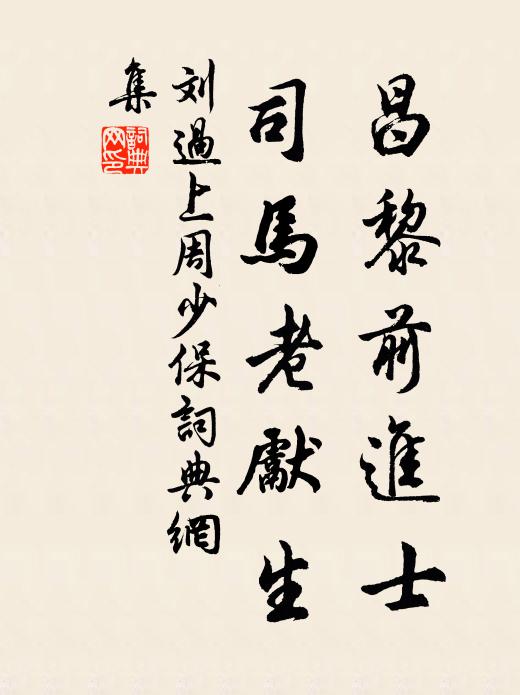 昌黎前進士
司馬老獻生
刘過上周少保詞典網
集
詞典网印